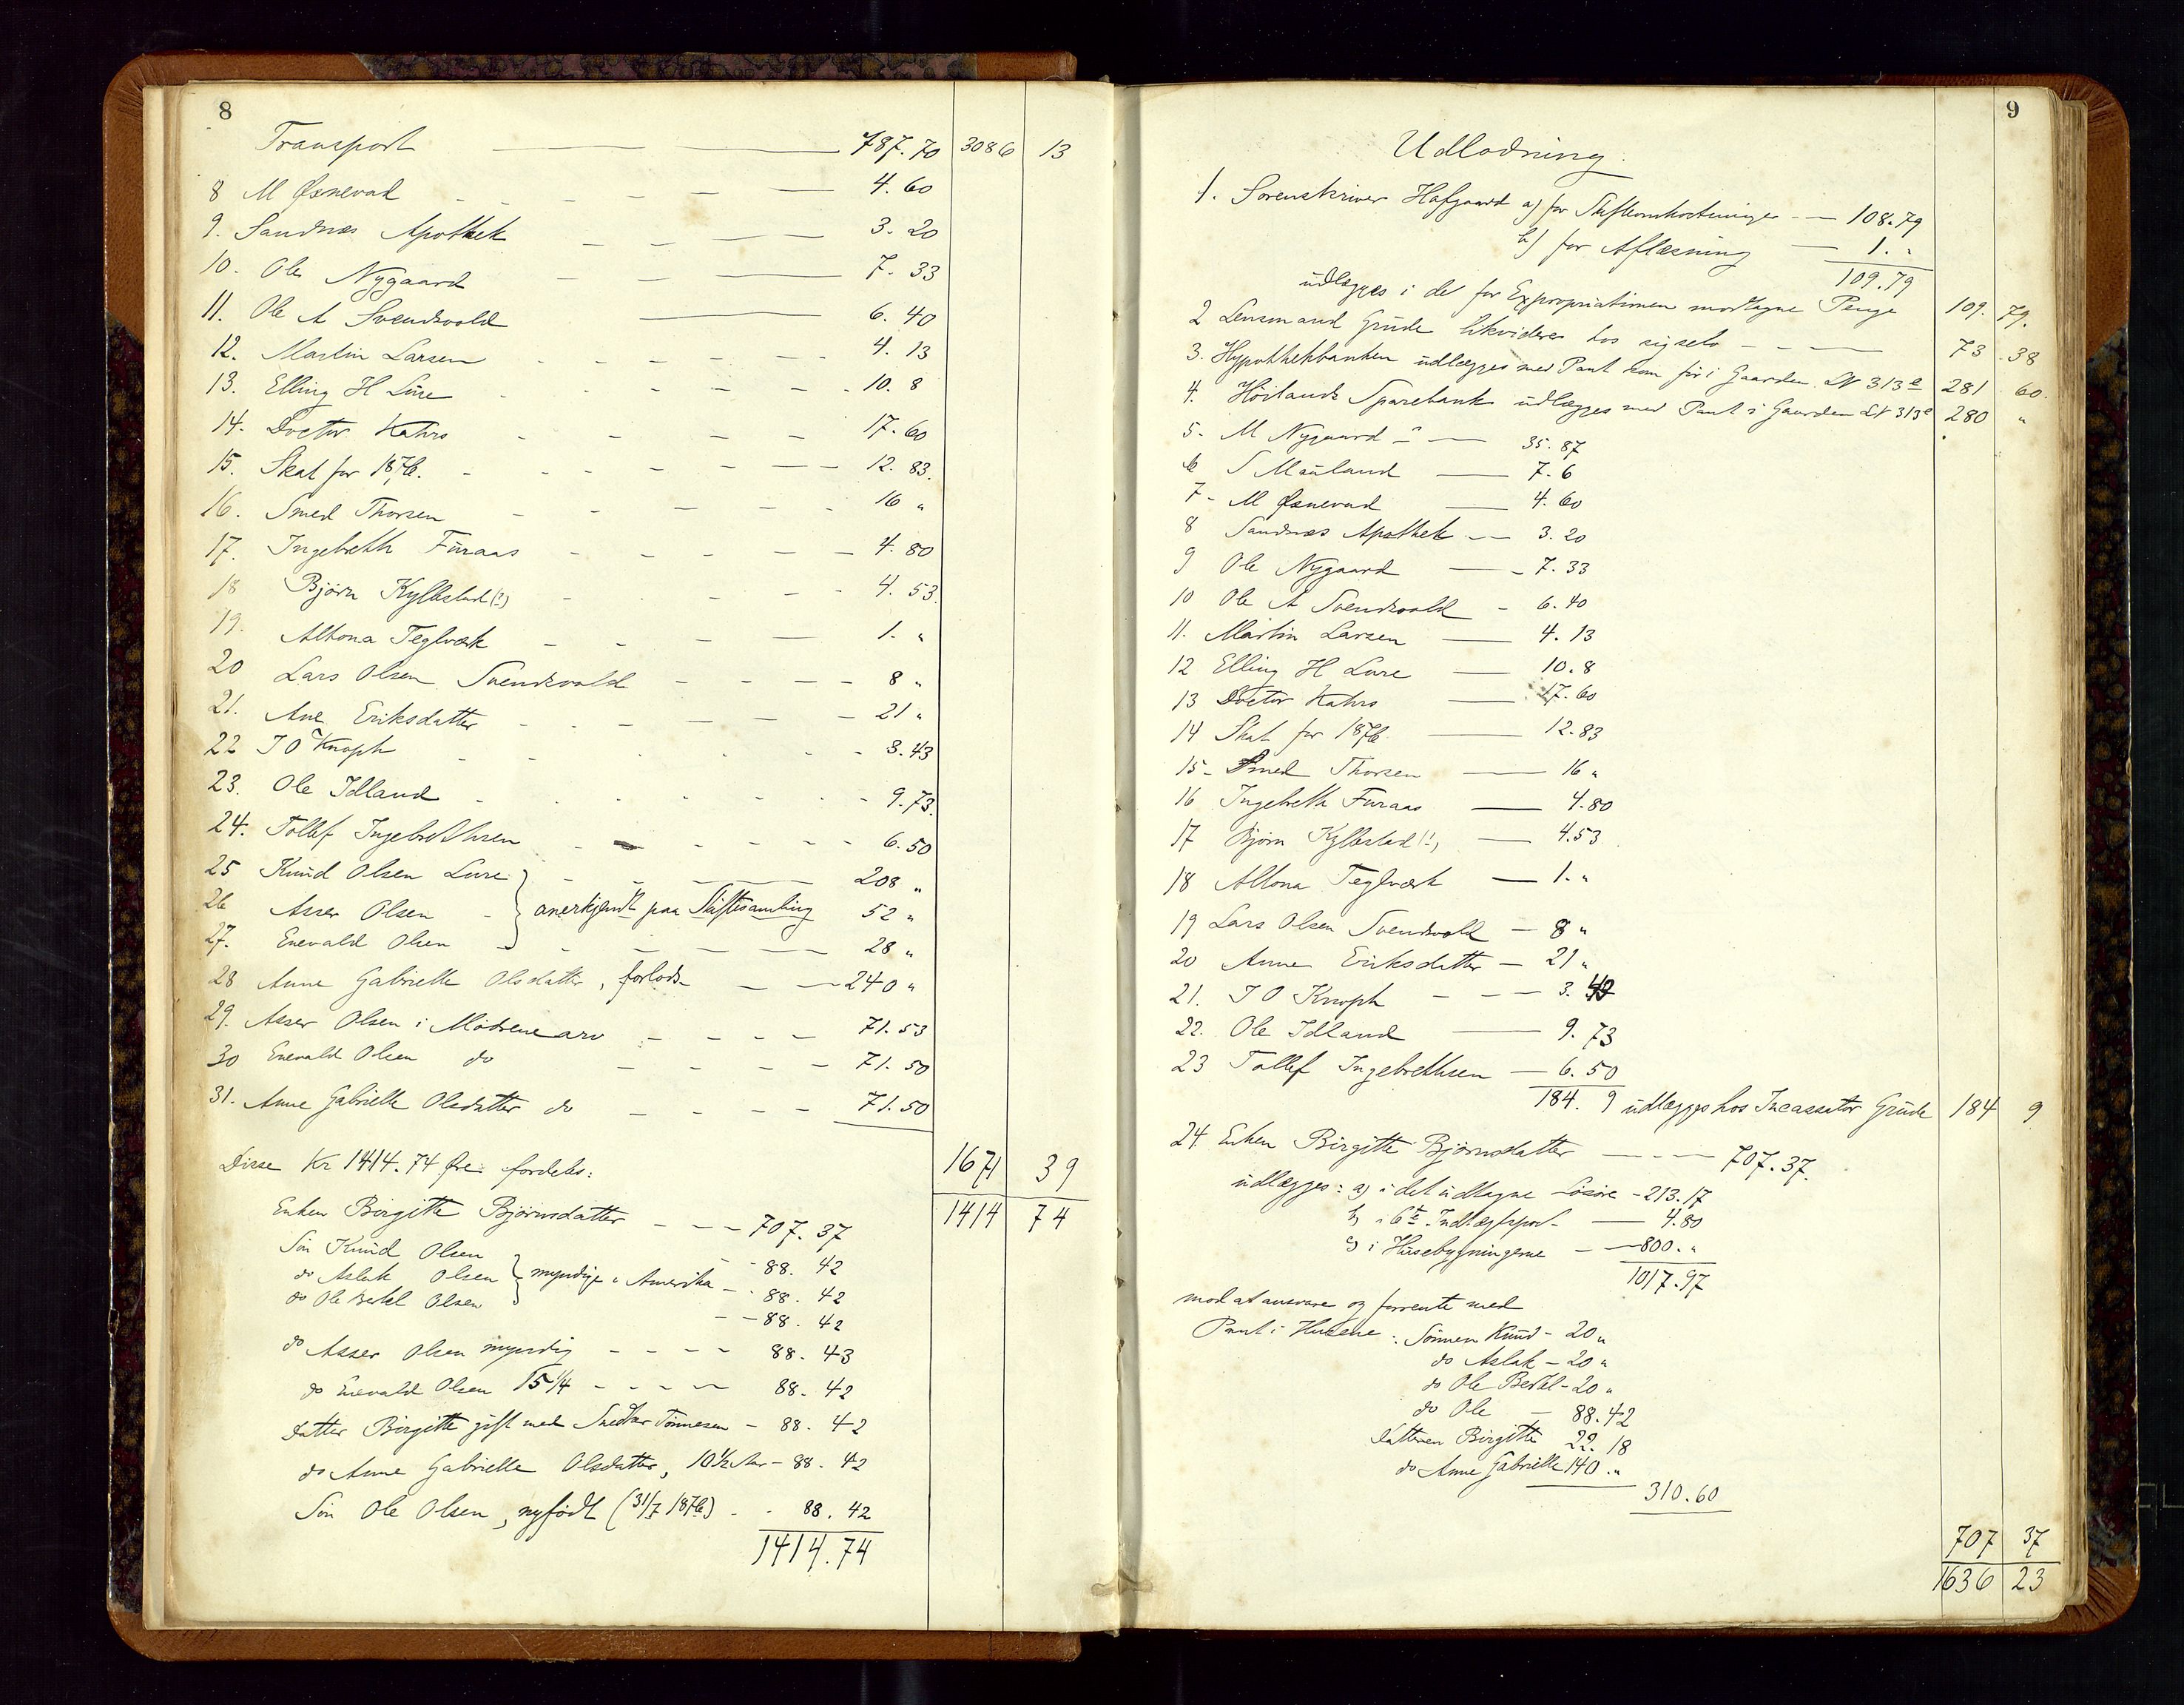 8
Transport — — 787.70 3086 13
8 M Øsnevad - - - - — 4.60
9. Sandnæs Apothek - - — 3.20
10. Ole Nygaard - - — 7.33
11. Ole A Svendsvold — 6.40
12. Martin Larsen - - - - - 4.13
13. Elling H Lure - - - - - 10.8
14. Doctor Kahrs - - - - 17.60
15. Skat for 1876. - - - - - — 12.83.
16. Smed Thorsen - - - - - 16 "
17. Ingebreth Furaas - - - - — 4.80
18 Bjørn Kylbstad(!) - - - - - 4.53.
19. Altona Teglværk - - - — 1. "
20 Lars Olsen Svendsvold - - - - 8 "
21. Ane Eriksdatter - - - - - - 21 "
22 I O Knoph - - - - - 3.43
23. Ole Idland - - - - - - 9.73.
24. Tollef Ingebrethsen - - - - - 6.50
25 Knud Olsen Lure - - — 208 "
26 Asser Olsen - } anerkjendt paa Skiftesamling 52 "
27. Enevald Olsen - - - - — 28 "
28 Anne Gabrielle Olsdatter, forlods - — 240 "
29. Asser Olsen i Mødrenearv - - - - 71.53
30 Enevald Olsen do - - - - 71.50
31. Anne Gabrielle Olsdatter do - - - - 71.50
1671 39
Disse Kr 1414.74 Øre fordeles:
1414 74
Enken Birgitte Bjørnsdatter - - - 707.37
Søn Knud Olsen - - 88.42
do Aslak Olsen } myndige i Amerika - - 88.42
do Ole Bertel Olsen - - 88.42
do Asser Olsen myndig - - - - 88.43
do Enevald Olsen 15 1/4 - - - - 88.42
Datter Birgitte gift med Tønnesen - 88.42
do Anne Gabrielle Olsdatter, 10 1/2 Aar - 88.42
Søn Ole Olsen, nyfødt (31/7 1876) - - 88.42
1414.74
9
Udlodning.
1. Sorenskriver Hafgaard a) for Skifteomkostninger - — 108.79
b) for Aflæsning — 1. "
109.79
udlægges i det for Expropriationen modtagne Penge 109. 79.
2 Lensmand Grude likviderer hos sig selv - - - — 73. 38
3. Hypothekbanken udlægges med Pant som før i Gaarden LN 313 a 281 60.
4. Høilands Sparebank udlægges med Pant i Gaarden LN 313 a 280 "
5. M Nygaard - — 35.87
6 S Mauland — 7.6
7. M Øsnevad — 4.60
8 Sandnæs Apothek - — 3.20
9 Ole Nygaard — 7.33
10 Ole A Svendsvold - 6.40
11. Martin Larsen — 4.13
12 Elling H Lure — 10.8
13 Doctor Kahrs — 17.60
14 Skat for 1876. — 12.83
15. Smed Thorsen — 16 "
16 Ingebreth Furaas — 4.80
17 Bjørn Kylbstad(!) — 4.53
18 Altona Teglværk — 1. "
19 Lars Olsen Svendsvold — 8 "
20 Anne Eriksdatter — 21 "
21. I O Knoph - - — 3.43
22. Ole Idland — 9.73
23 Tollef Ingebrethsen — 6.50
184. 9 udlægges hos Incassator Grude 184 9
24 Enken Birgitte Bjørnsdatter — - - — 707.37.
udlægges: a) i det udtagne Løsøre - 213.17
b) i 6te Indtægtspost — 4.80
c) i Husebygningerne - — 800. "
1017.97
mod at ansvare og forrente med
Pant i Husene: Sønnen Knud - 20 "
do Aslak - 20 "
do Ole Bertel - 20 "
do Ole — 88.42
Datteren Birgitte 22.18
do Anne Gabrielle 140. "
310.60
707 37
1636 23